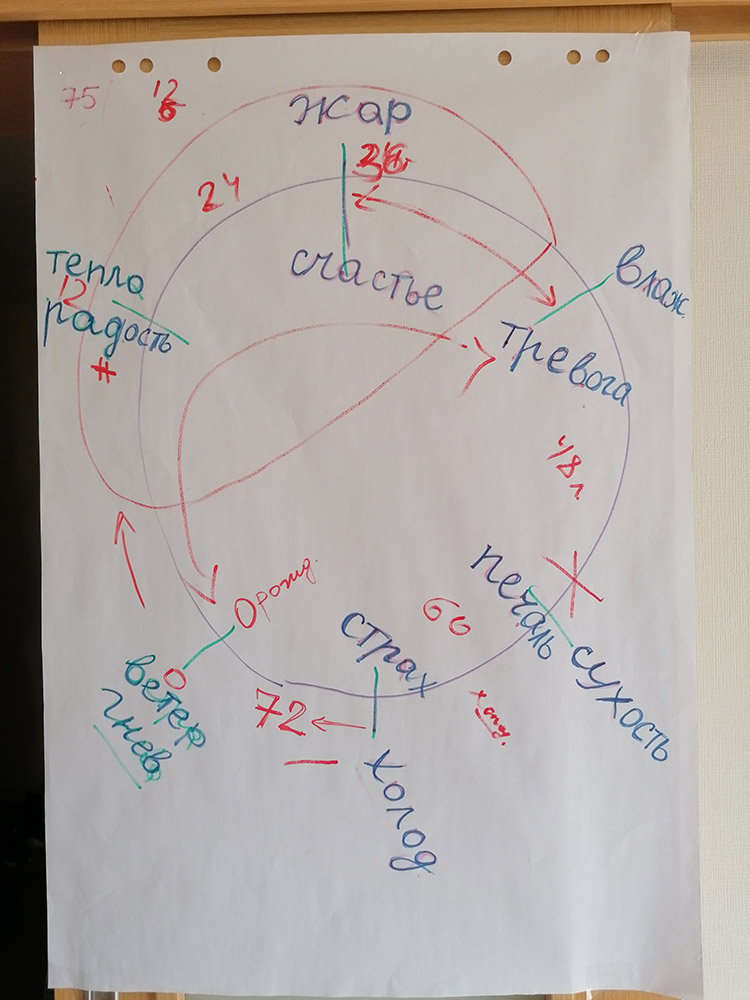 75
12
жар
36
24
счастье
тепло
12
радость
влаж.
тревога
48 л.
печаль
сухость
60
страх
0 рожд.
ветер
0
гнев
72
холод